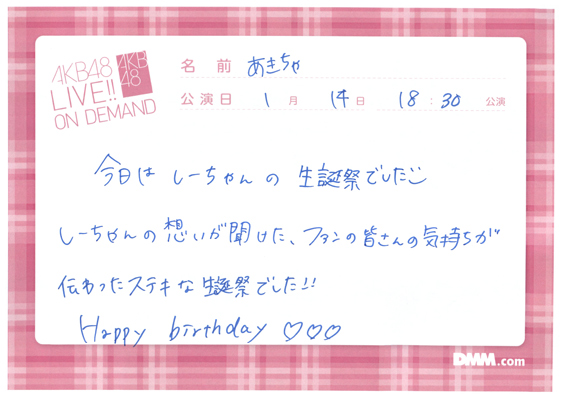 AKB48
LIVE!!
ON DEMAND
AKB
48
名前 あきちゃ
公演日 1月 14日 18:30 公演
今日は しーちゃんの 生誕祭でした
しーちゃんの想いが聞けた、ファンの皆さんの気持ちが
伝わったステキな生誕祭でした!!
Happy birthday ♡♡♡
DMM.com